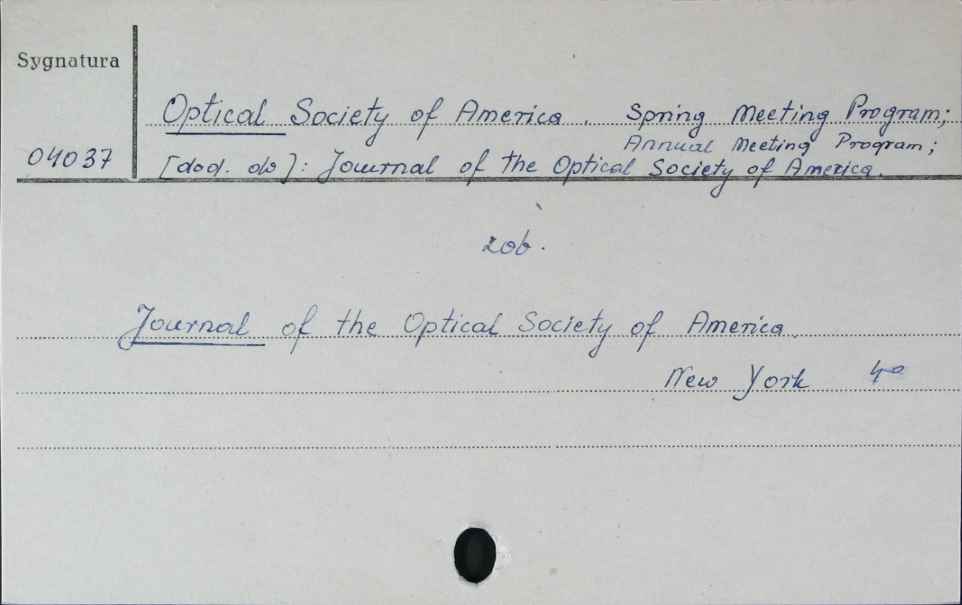 Sygnatura
Optical Society of America. Spring Meeting Program;
Annual Meeting Program;
04037
[dod. do]: Journal of the Optical Society of America.
zob.
Journal of the Optical Society of America.
New York 4°